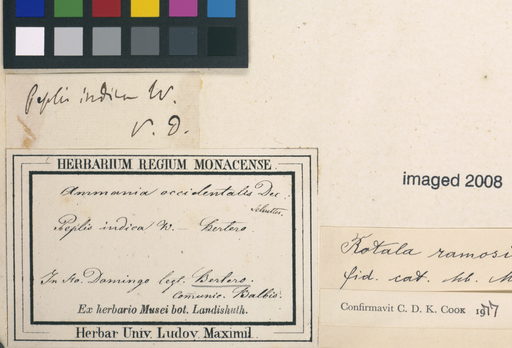 Peplis indica W.
V. D.
HERBARIUM REGIUM MONACENSE
Ammania occidentalis Dec.
Peplis indica W. — Bertero
In Sto. Domingo legt. Bertero.
Comunic. Balbis.
Ex herbario Musei bot. Landishuth.
Herbar Univ. Ludov. Maximil.
imaged 2008
Rotala ramosi
fid. cat. hb. M
Confirmavit C. D. K. COOK 1977